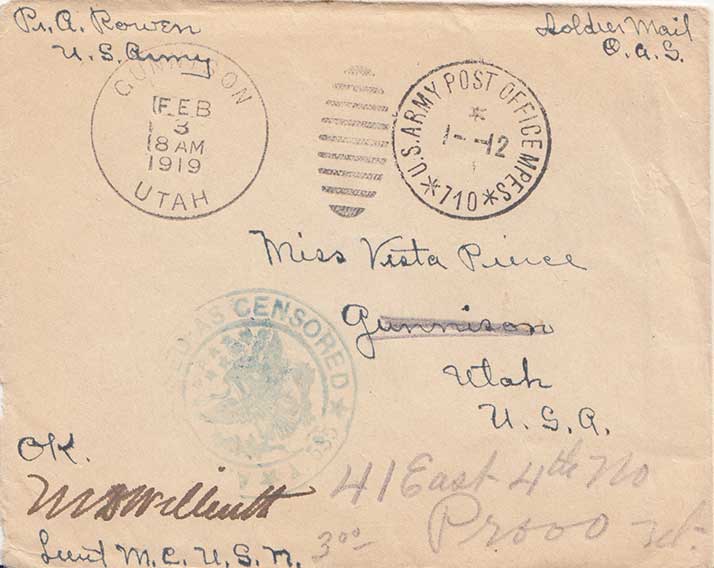 Pr. A. Rowen
U.S. Army
Soldier Mail
O.A.S.
GUNNISON
FEB
3
8 AM
1919
UTAH
U.S. ARMY POST OFFICE MPES
*
1--12
*710*
Miss Vista Pierce
Gunnison
Utah
U.S.A.
AS CENSORED
OK.
Lieut M.C. U.S.N.
41 East 4th No
Provo
3 00